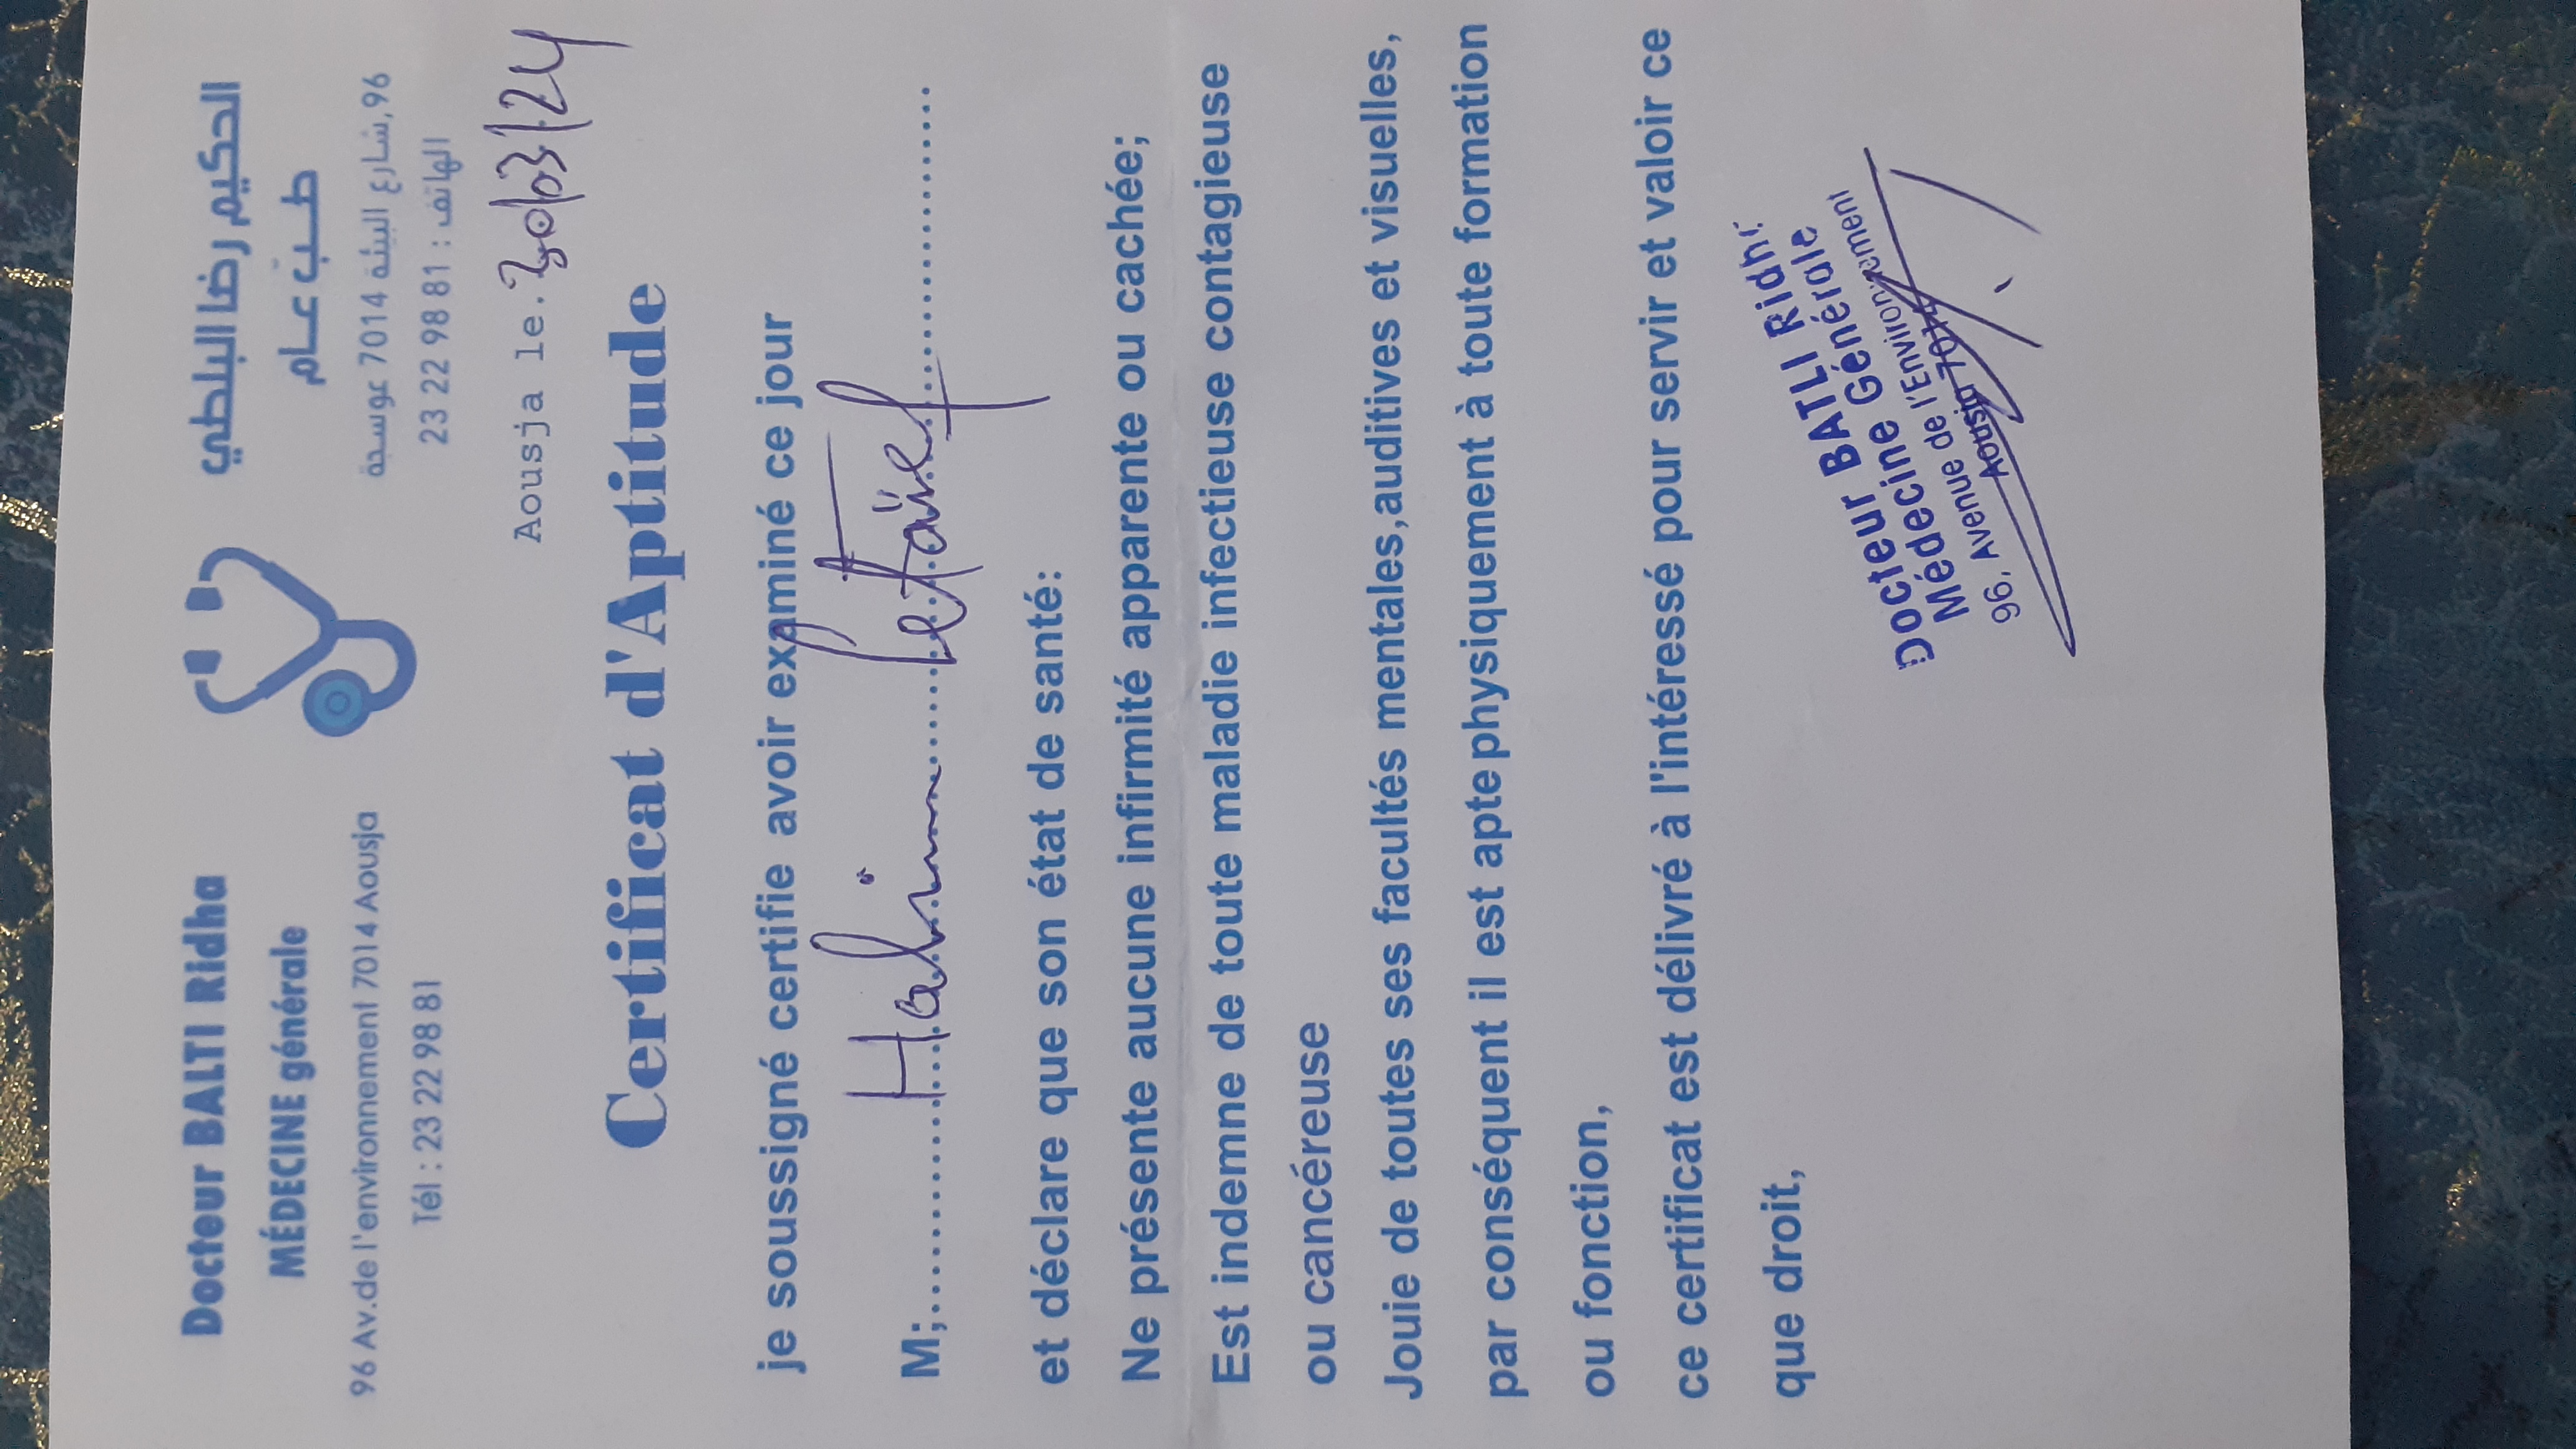 Docteur BALTI Ridha
MÉDECINE générale
96 Av.de l'environnement 7014 Aousja
Tél : 23 22 98 81
الحكيم رضا البلطي
طب عام
96,شارع البيئة 7014 عوسجة
الهاتف : 23 22 98 81
Aousja le.30/03/24
Certificat d'Aptitude
je soussigné certifie avoir examiné ce jour
M;.........Halim.......Letaïef..................
et déclare que son état de santé:
Ne présente aucune infirmité apparente ou cachée;
Est indemne de toute maladie infectieuse contagieuse
ou cancéreuse
Jouie de toutes ses facultés mentales,auditives et visuelles,
par conséquent il est apte physiquement à toute formation
ou fonction,
ce certificat est délivré à l'intéressé pour servir et valoir ce
que droit,
Docteur BATLI Ridha
Médecine Générale
96, Avenue de l'Environnement
Aousja 7014